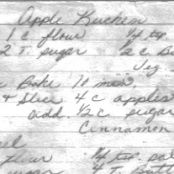 Apple Kuchen
1 C flour 1/4 tsp
2 T. sugar 1/2 C B
Bake 10 min.
+ Slice 4 C apples
add 1/2 C sugar
Cinnamon
flour 1/4 tsp sal
4 T. Butt